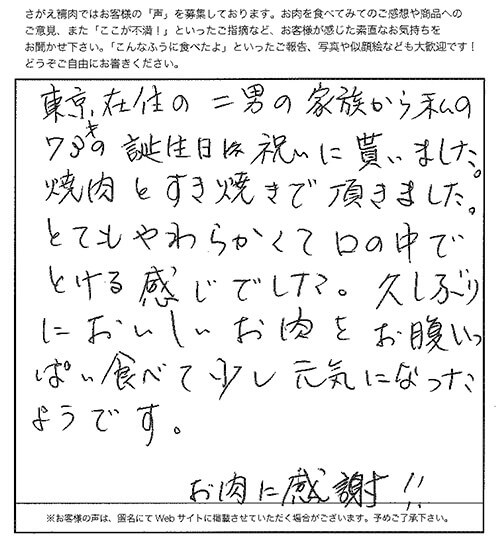 さがえ精肉ではお客様の「声」を募集しております。お肉を食べてみてのご感想や商品への
ご意見、また「ここが不満！」といったご指摘など、お客様が感じた素直なお気持ちを
お聞かせ下さい。「こんなふうに食べたよ」といったご報告、写真や似顔絵なども大歓迎です！
どうぞご自由にお書きください。
東京、在住の二男の家族から私の
73才の誕生日お祝いに貰いました。
焼肉とすき焼きで頂きました。
とてもやわらかくて口の中で
とける感じでした。久しぶり
においしいお肉をお腹いっ
ぱい食べて少し元気になった
ようです。
お肉に感謝!!
※お客様の声は、匿名にてWebサイトに掲載させていただく場合がございます。予めご了承下さい。